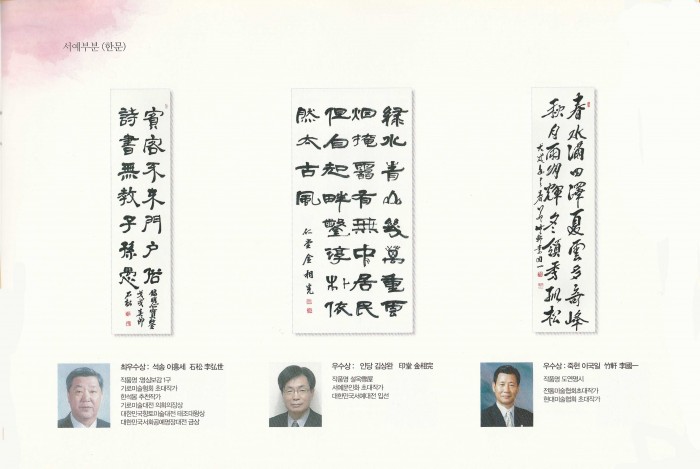 서예부분 (한문)
賓客不来門户俗
詩書無教子孫愚
石松
綠水青山幾萬重雲
烟掩靄有無中居民
但自起畔鑿淳朴依
然太古風
仁堂金相完
春水滿四澤夏雲多奇峰
秋月揚明輝冬嶺秀孤松
최우수상 : 석송 이홍세 石松 李弘世
작품명 명심보감 1구
기로미술협회 초대작가
한석봉 추천작가
기로미술대전 의회의장상
대한민국향토미술대전 태조대왕상
대한민국서화공예명장대전 금상
우수상 : 인당 김상완 印堂 金相完
작품명
서예문인화 초대작가
대한민국서예대전 입선
우수상 : 죽헌 이국일 竹軒 李國一
작품명 도연명시
전통미술협회초대작가
현대미술협회 초대작가